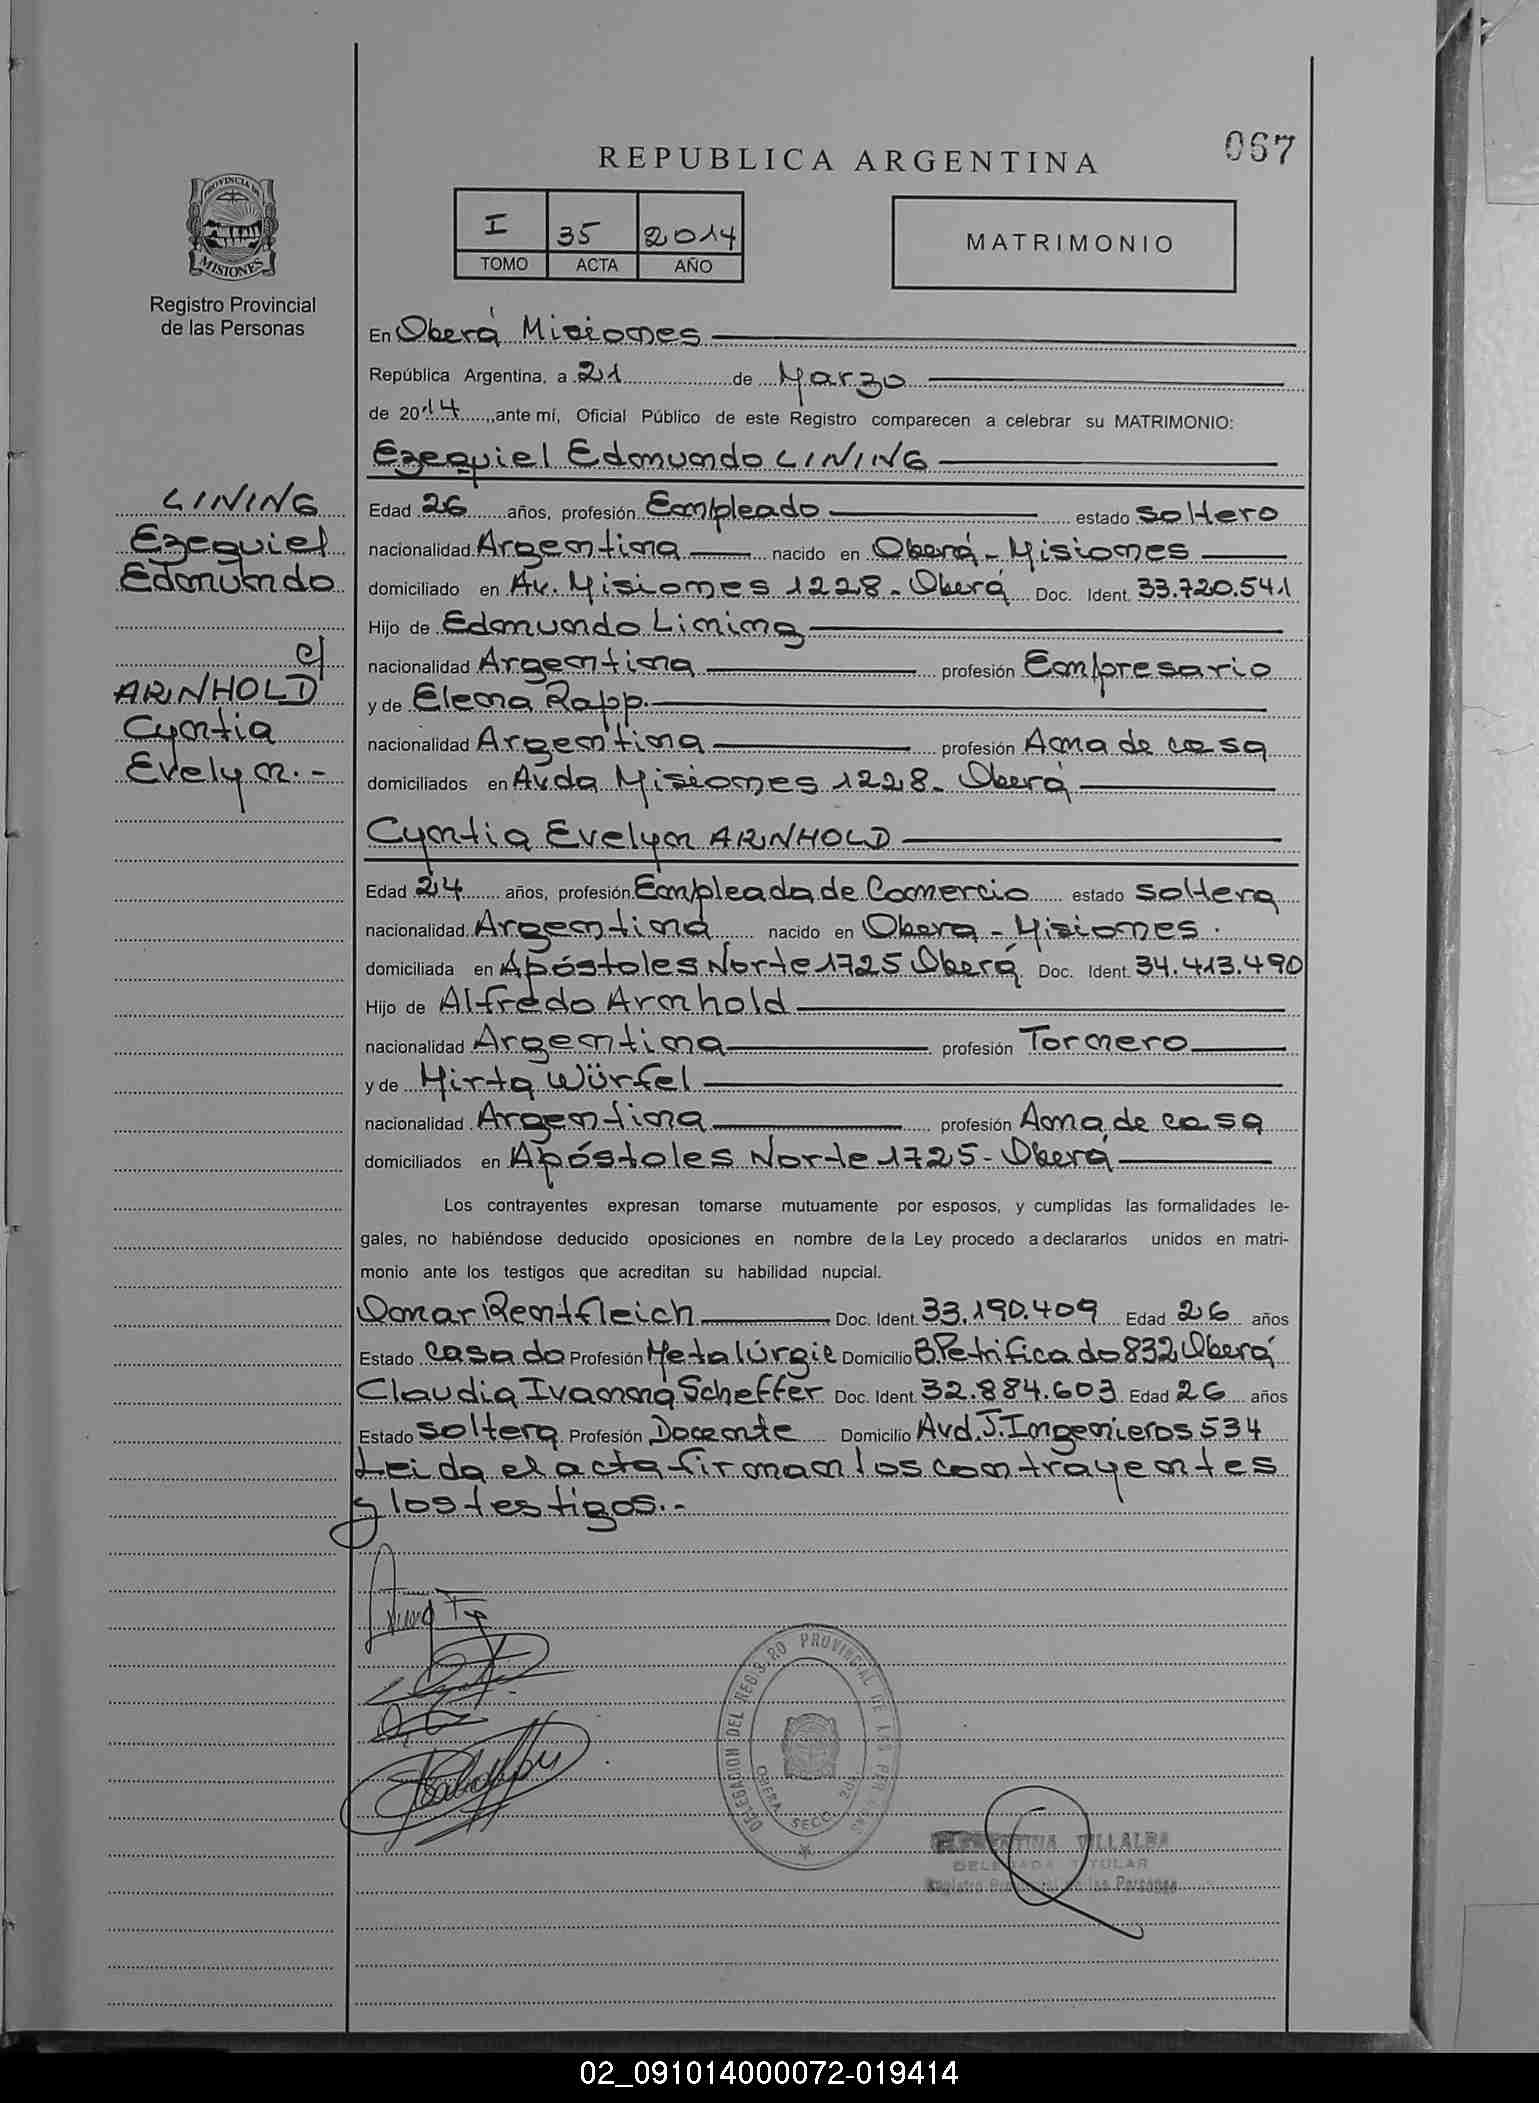 067
REPUBLICA ARGENTINA
PROVINCIA DE
MISIONES
Registro Provincial
de las Personas
I 35 2014
TOMO ACTA AÑO
MATRIMONIO
En Oberá Misiones
República Argentina, a 21 de Marzo
de 2014, ante mí, Oficial Público de este Registro comparecen a celebrar su MATRIMONIO:
Ezequiel Edmundo LINING
LINING
Ezequiel
Edmundo
c/
ARNHOLD
Cyntia
Evelyn.-
Edad 26 años, profesión Empleado estado soltero
nacionalidad Argentina nacido en Oberá - Misiones
domiciliado en Av. Misiones 1228 - Oberá Doc. Ident. 33.720.541
Hijo de Edmundo Lining
nacionalidad Argentina profesión Empresario
y de Elena Rapp.
nacionalidad Argentina profesión Ama de casa
domiciliados en Avda Misiones 1228 - Oberá
Cyntia Evelyn ARNHOLD
Edad 24 años, profesión Empleada de Comercio estado soltera
nacionalidad Argentina nacido en Obera - Misiones.
domiciliada en Apóstoles Norte 1725 Oberá Doc. Ident. 34.413.490
Hijo de Alfredo Arnhold
nacionalidad Argentina profesión Tornero
y de Mirta Würfel
nacionalidad Argentina profesión Ama de casa
domiciliados en Apóstoles Norte 1725 - Oberá
Los contrayentes expresan tomarse mutuamente por esposos, y cumplidas las formalidades le-
gales, no habiéndose deducido oposiciones en nombre de la Ley procedo a declararlos unidos en matri-
monio ante los testigos que acreditan su habilidad nupcial.
Omar Rentfleich Doc. Ident. 33.190.409 Edad 26 años
Estado casado Profesión Metalúrgic Domicilio B. Petrificado 832 Oberá
Claudia Ivanna Scheffer Doc. Ident. 32.884.603 Edad 26 años
Estado soltera Profesión Docente Domicilio Avd. J. Ingenieros 534
Leida el acta firman los contrayentes
y los testigos.-
DELEGACION DEL REGISTRO PROVINCIAL DE LAS PERSONAS
OBERA SECC. 2da
VILLALBA
DELEGADA TITULAR
Registro Provincial de las Personas
02_091014000072-019414